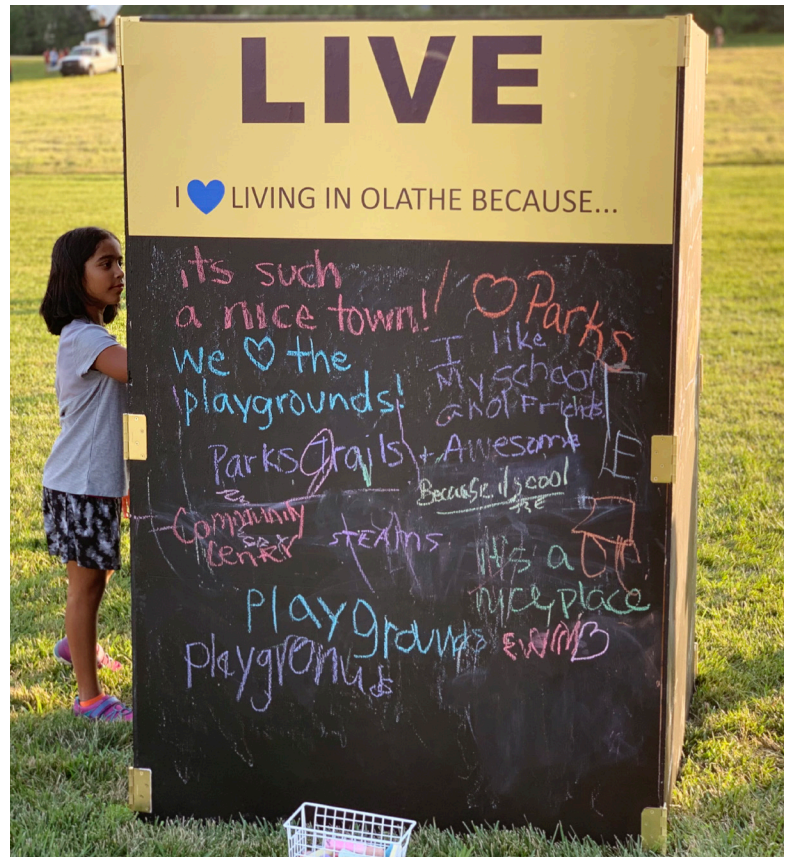 LIVE
I LIVING IN OLATHE BECAUSE...
its such
a nice town!!
Parks
we the
playgrounds!
I like
My school
and Friends
Parks Trails + Awesome
Because its cool
Community
Center
STEAMS
it's a
nice place
playgrounds